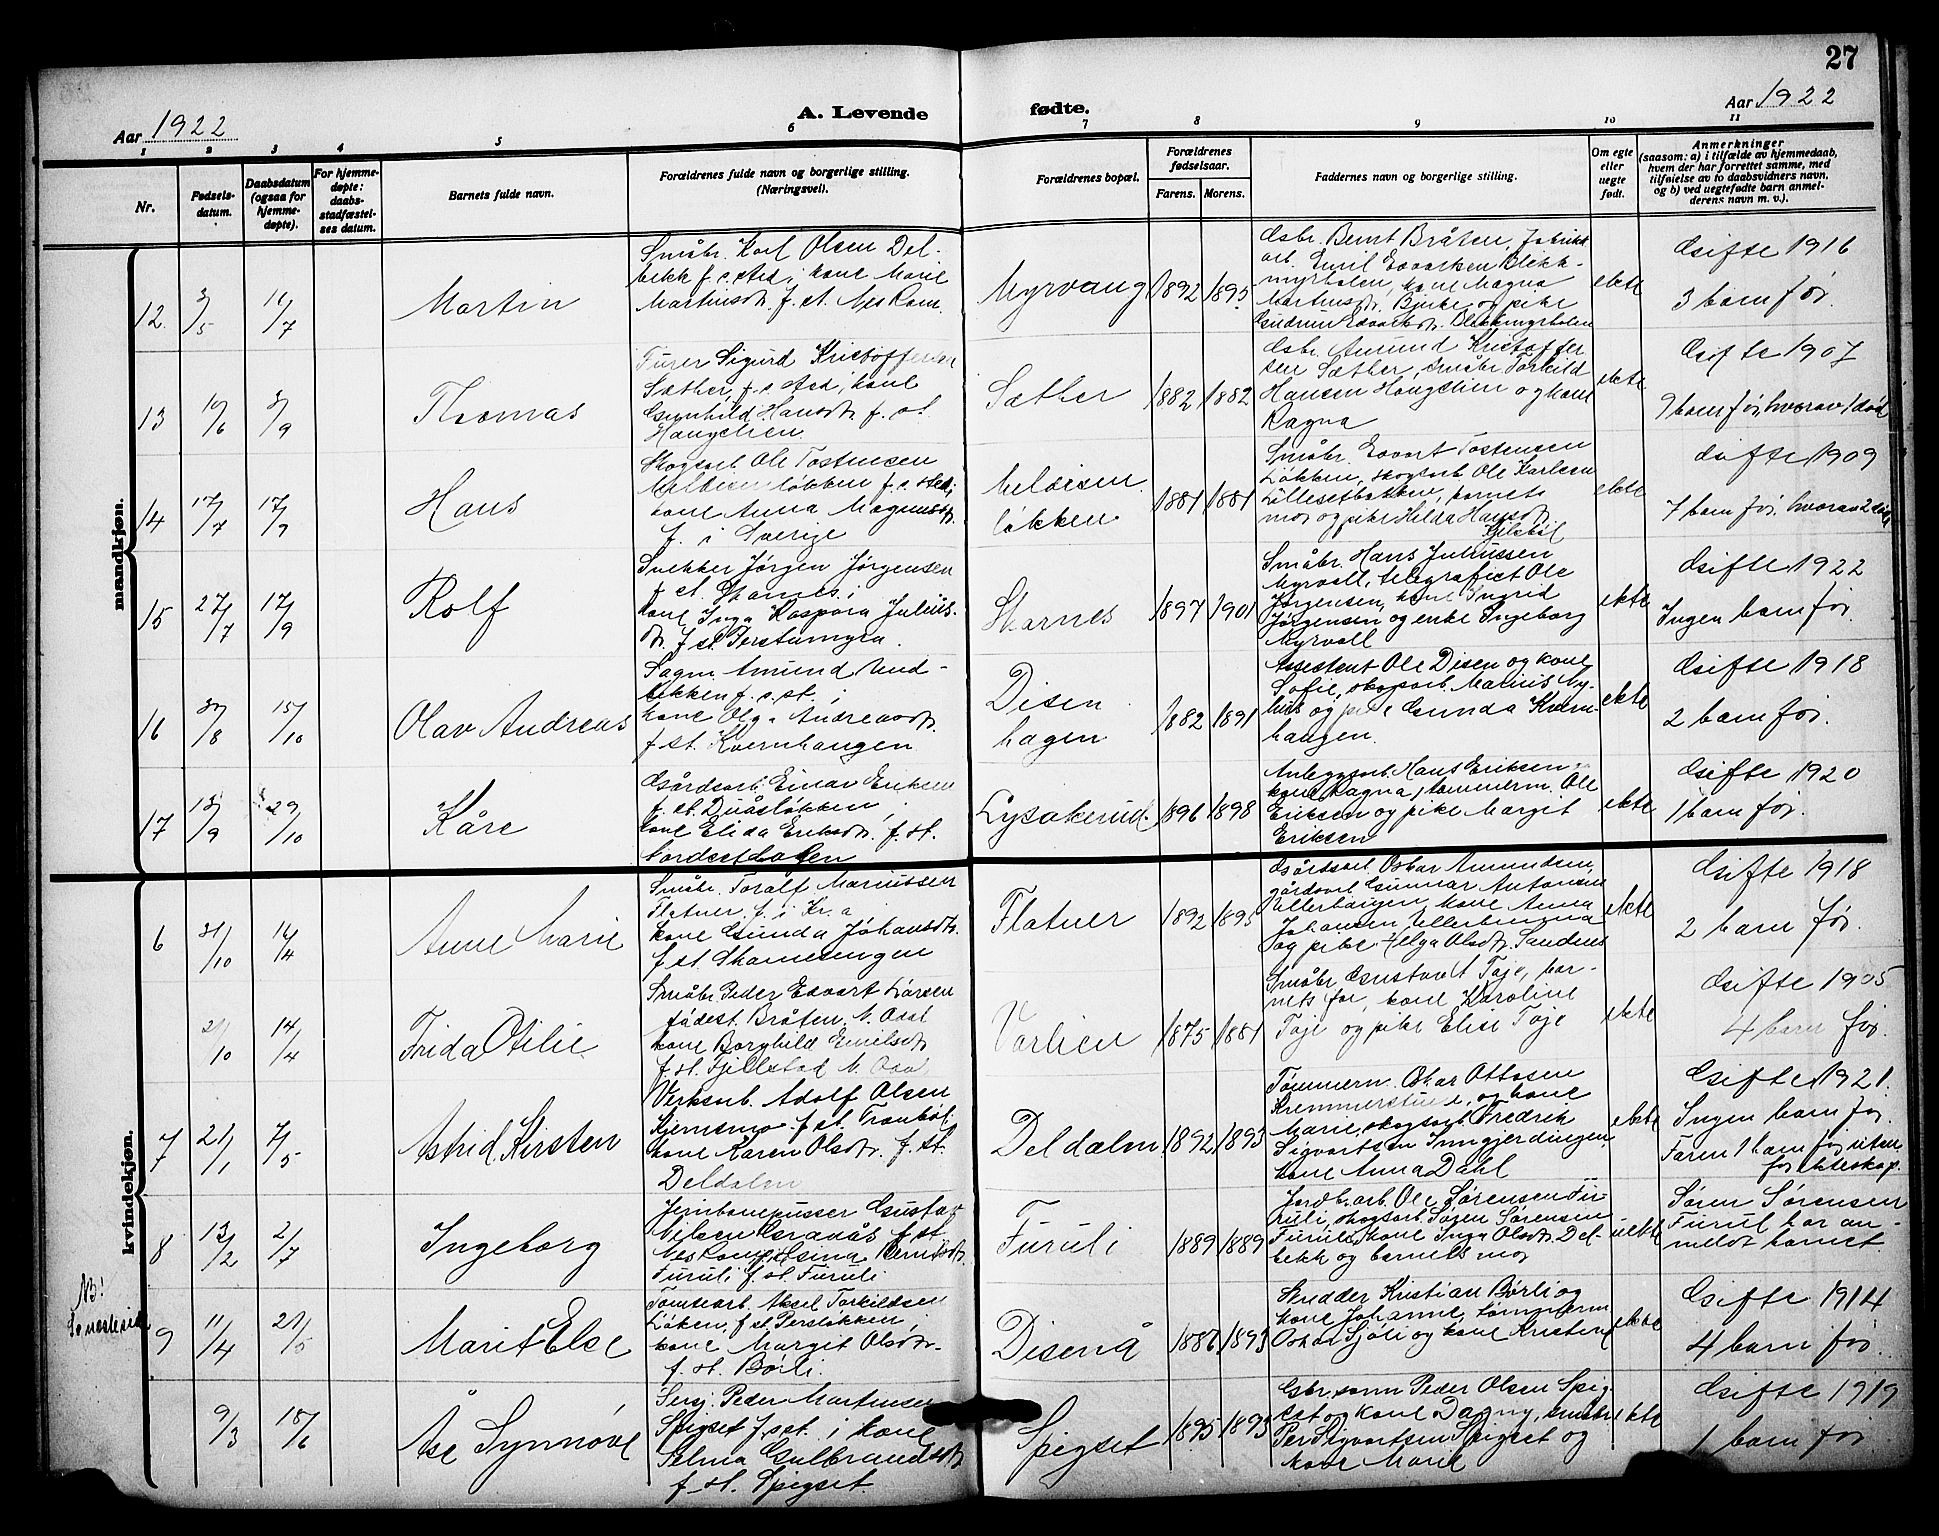 27
Aar 1922
A. Levende fødte.
Aar 1922
1 2 3 4 5 6 7 8 9 10 11
Nr.
Fødsels-
datum.
Daabsdatum
(ogsaa for
hjemme-
døpte).
For hjemme-
døpte:
daabs-
stadfæstel-
ses datum.
Barnets fulde navn.
Forældrenes fulde navn og borgerlige stilling.
(Næringsvei).
Forældrenes bopæl.
Forældrenes
fødselsaar.
Farens. Morens.
Faddernes navn og borgerlige stilling.
Om egte
eller
uegte
født.
Anmerkninger
(saasom: a) i tilfælde av hjemmedaab,
hvem der har forrettet samme, med
tilføielse av to daabsvidners navn,
og b) ved uegtefødte barn anmel-
derens navn m. v.).
mandkjøn.
12. 3/5 16/7 Martin
Småbr. Karl Olsen Del-
bekk f. s. sted, i kone Marie
Martinsdtr. f. st. Nes Rom.
Myrvang 1892 1895
Gbr. Bernt Bråten, fabrikk
arb. Emil Edvartsen Blekk-
myrholen, kone Magna
Martinsdtr. Bjerke og pike
Gudrun Edvartsdtr. Blekkmyrholen
ekte
Gifte 1916
3 barn før.
13 10/6 3/9 Thomas
Furer Sigurd Kristoffersen
Sæther, f. s. sted, i kone
Gunhild Hansdtr. f. st.
Haugelien
Sæther 1882 1882
Gbr. Amund Kristoffer
sen Sæther, småbr. Torkild
Hansen Haugelien og kone
Ragna
ekte
Gifte 1907
9 barn før, hvorav 1 død
14 17/7 17/9 Hans
Skogsarb. Ole Tostensen
Meldisenløkken f. s. sted,
kone Anna Magnusdtr.
f. i Sverige
Meldisen
løkken 1881 1881
Småbr. Edvart Tostensen
Løkken, skogsarb. Ole Karlsen
Lillesetbakken, barnets
mor og pike Hilda Hansdtr.
ekte
Gifte 1909
7 barn før, hvorav 2 døde
15 27/7 17/9 Rolf
Snekker Jørgen Jørgensen
f. st. Skarnes i
kone Inga Kaspara Julius-
dtr. f. st. Perstumyra
Skarnes 1897 1901
Småbr. Hans Juliussen
Myrvoll, telegrafist Ole
Jørgensen, kone Ingrid
Jørgensen og enke Ingeborg
Myrvoll
ekte
Gifte 1922
Ingen barn før.
16 30/8 15/10 Olav Andreas
Sagm. Amund Vend-
bekken f. s. st. i
kone Olga Andreasdtr.
f. st. Kvernhaugen
Disen
hagen 1882 1891
Assistent Ole Disen og kone
Sofie, skogsarb. Marius Ny-
hus og pike Gunda Kvern-
haugen.
ekte
Gifte 1918
2 barn før.
17 18/9 29/10 Kåre
Gårdsarb. Einar Eriksen
f. st. Duåsløkken,
kone Elida Eriksdtr. f. st.
Lysakerud. 1896 1898
Anleggsarb. Hans Eriksen,
kone Ragna, tømmerm. Ole
Eriksen og pike Margit
Eriksen
ekte
Gifte 1920
1 barn før.
kvindekjøn.
6 31/10 16/4 Anne Marie
Småbr. Toralf Mariussen
Flatner f. i Kr.a
kone Gunda Johansdtr.
f. st. Skarnesengen
Flatner 1892 1895
Gårdsarb. Oskar Amundsen,
gårdsarb. Gunnar Antonsen
Ullerhaugen, kone Anna
Johansen, Ullerhaugen
og pike Helga Olsdtr. Sandnes
ekte
Gifte 1918
2 barn før.
21/10 14/4 Frida Otilie
Småbr. Peder Edvart Larsen
fødest. Bråten N. Osa
kone Borghild Emilsdtr.
f. st. Fjellstad N. Osa
Varlien 1875 1881
Småbr. Gustav Taje, bar-
nets far, kone Karoline
Taje og pike Elise Taje
ekte
Gifte 1905
4 barn før.
7 21/1 7/5 Astrid Kirsten
Verksarb. Adolf Olsen
Hjemsmo f. st. Tranbøl,
kone Karen Olsdtr. f. st.
Deldalen
Deldalen 1892 1893
Tømmerm. Oskar Ottosen
Kremmerstuen, og kone
Marie, skogsarb. Fredrik
Sigvartsen Inngjerdingen,
kone Anna Dahl
ekte
Gifte 1921.
Ingen barn før
Faren 1 barn før uten
for ekteskap.
8 12/2 2/7 Ingeborg
Jernbanepusser Gustav
Nilsen Granås f. st.
Nes Rom, Olsina Berntsdtr.
Furuli f. st. Furuli
Furuli 1889 1889
Jordb.arb. Ole Sørensen Fu-
ruli, skogsarb. Søren Sørensen
Furuli, kone Inga Olsdtr. Del-
bekk og barnets mor
uekte
Søren Sørensen
Furuli har an-
meldt barnet
NB!
9 11/4 21/5 Marit Else
Tomtearb. Aksel Torkildsen
Løken, f. st. Persløkken,
kone Margit Olsdtr.
f. st. Børli
Disenå 1886 1893
Skredder Kristian Børli og
kone Johanne, tømmerm.
Oskar Sjøli og kone Kristine
ekte
Gifte 1914
4 barn før.
9/3 18/6 Åse Synnøve
Serg. Peder Martinsen
Spigset f. st. i kone
Selma Gulbrandsdtr.
f. st. Spigset.
Spigset 1895 1893
Gbr. sønn Peder Olsen Spig-
set og kone Dagny, småbr.
Per Sigvartsen Spigset og
kone Marie
ekte
Gifte 1919
1 barn før